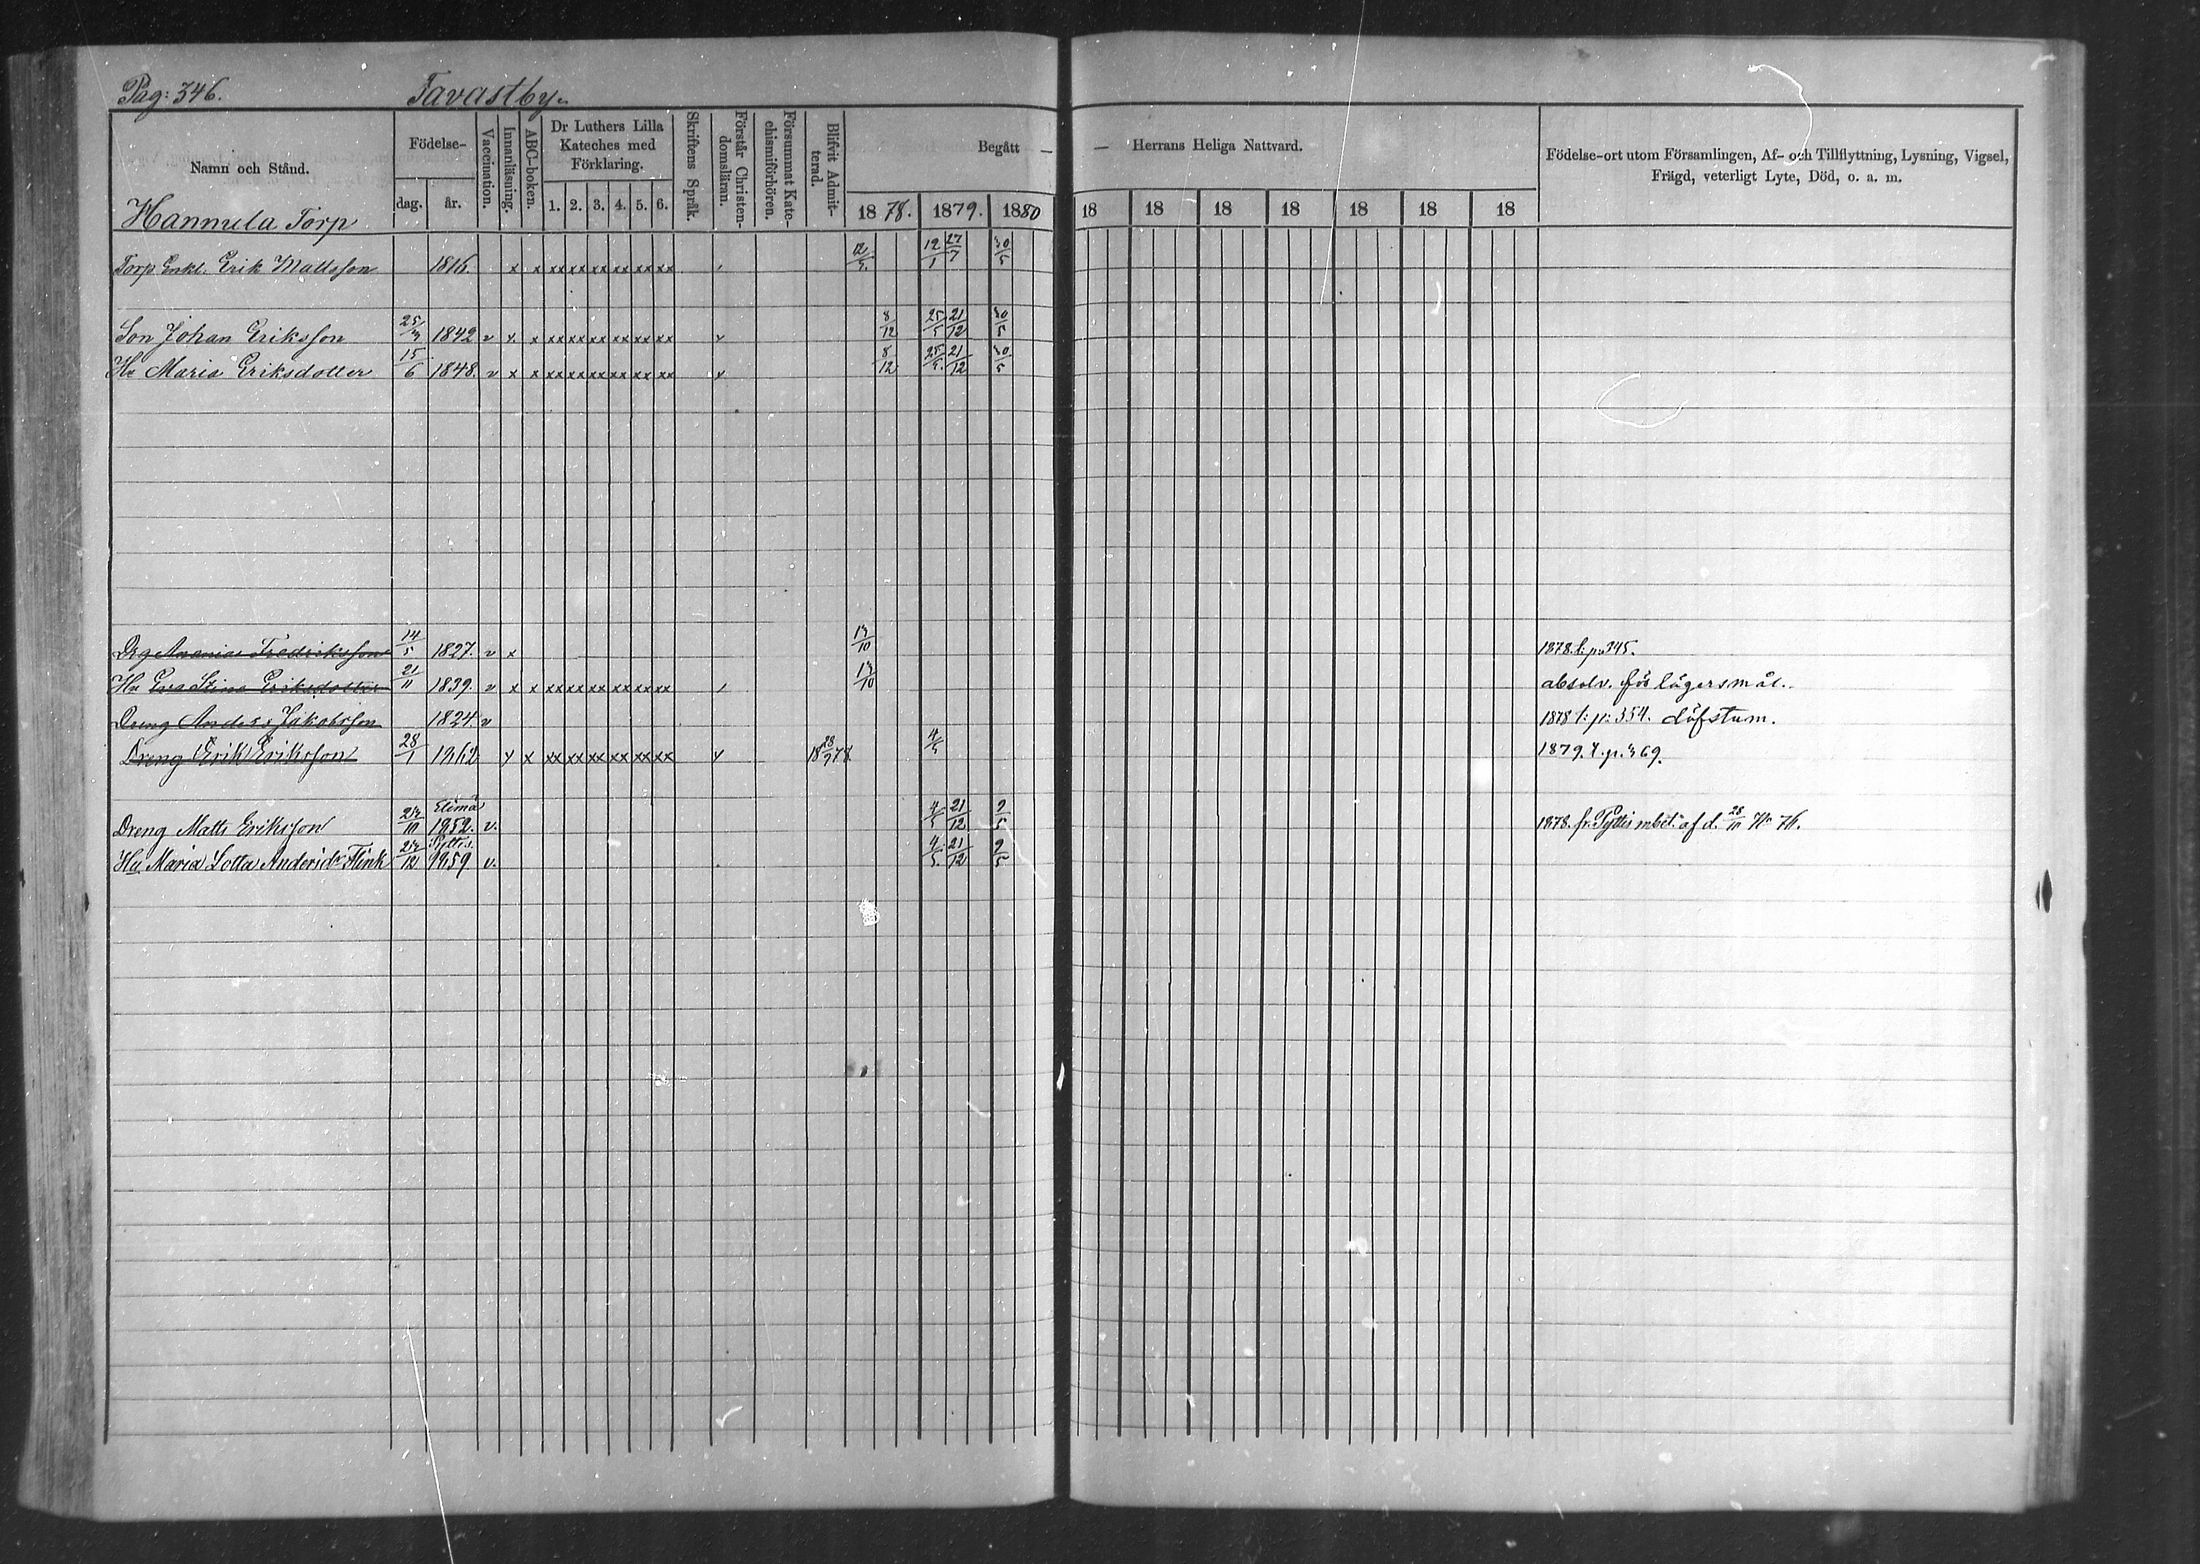 Pag: 346. Tavastby.
Namn och Stånd. Födelse- dag. år. Vaccination. Innanläsning. ABC-boken. Dr Luthers Lilla Kateches med Förklaring. 1. 2. 3. 4. 5. 6. Skriftens Språk. Förstår Christendomsläran. Försummat Katechismiförhören. Blifvit Admitterad. Begått — — Herrans Heliga Nattvard. Födelse-ort utom Församlingen, Af- och Tillflyttning, Lysning, Vigsel, Frägd, veterligt Lyte, Död, o. a. m.
1878. 1879. 1880 18 18 18 18 18 18 18
Hannula Torp
Torp Enkl. Erik Mattsson 1816. x x xx xx xx xx xx xx 12/ 12/1 27/7 30/5
Son Johan Eriksson 25/3 1842 v x x xx xx xx xx xx xx v 8/12 25/5 21/12 30/5
Hu Maria Eriksdotter 15/6 1848. v x x xx xx xx xx xx xx v 8/12 25/5 21/12 30/5
Drg Ananias Fredriksson 14/5 1827. v x 13/10 1878. t. p. 345.
Hu Eva Stina Eriksdotter 21/11 1839. v x x xx xx xx xx xx xx 13/10 absolv. för lägersmål.
Dreng Anders Jakobsson 1824 v 1878 t: p: 354. döfstum.
Dreng Erik Eriksson 28/1 1862 v x xx xx xx xx xx xx v 18 28/9 78. 4/5 1879. t. p. 369.
Dreng Matts Eriksson 23/10 Elimä 1852. v. 4/5 21/12 9/5 1878. fr. Pyttis mbet. af d. 28/10 No 76.
Hu. Maria Lotta Andersdr Flink 23/12 Pyttis. 1859. v. 4/5 21/12 9/5